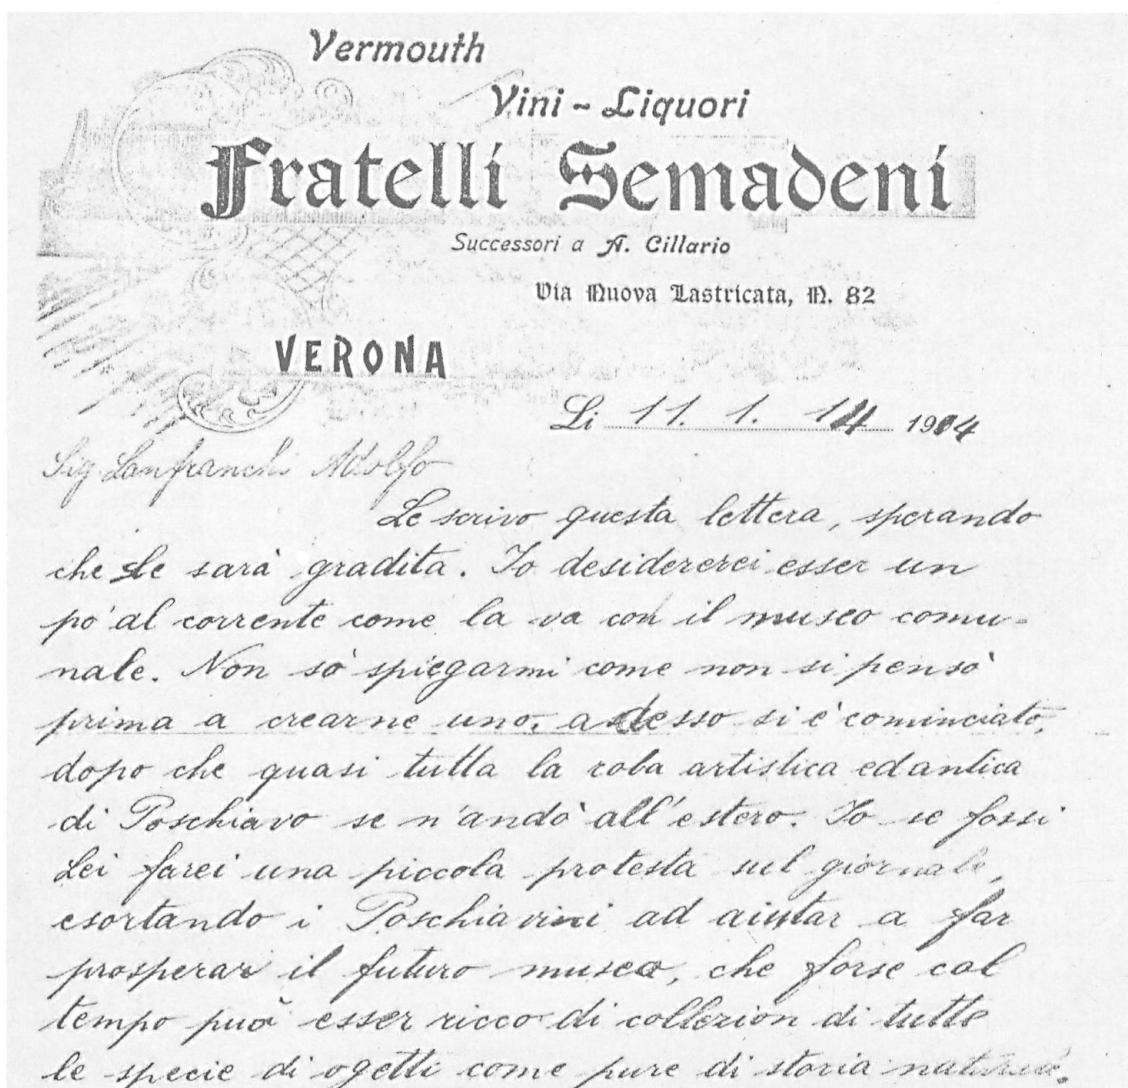 Vermouth
Vini - Liquori
Fratelli Semadeni
Successori a A. Cillario
Via Nuova Lastricata, N. 82
VERONA
Li 11. 1. 14 1914
Sig. Lanfranchi Adolfo
Le scrivo questa lettera, sperando
che Le sarà gradita. Io desidererei esser un
po' al corrente come la va con il museo comu-
nale. Non sò spiegarmi come non si pensò
prima a crearne uno, adesso si è cominciato,
dopo che quasi tutta la roba artistica ed antica
di Poschiavo se n'andò all'estero. Io se fossi
Lei farei una piccola protesta sul giornale,
esortando i Poschiavini ad aiutar a far
prosperar il futuro museo, che forse col
tempo può esser ricco di collezion di tutte
le specie di ogetti come pure di storia naturale.